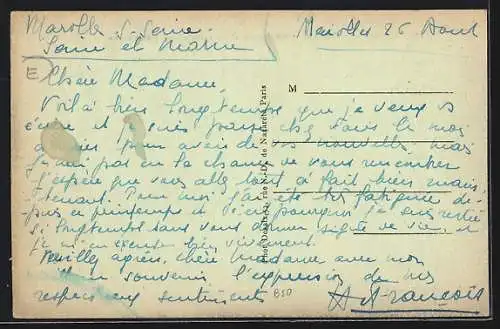 Marolles s. Seine
Seine et Marne
Marolles 26 Août
E
Chère Madame,
M
Voilà bien longtemps que je veux vs
écrire et je suis passée chez vous le mois
dernier pour avoir de vos nouvelles mais
je n'ai pas eu la chance de vous rencontrer
J'espère que vous allez tout à fait bien main-
tenant. Pour moi j'ai été très fatiguée de-
puis ce printemps et c'est pourquoi je suis restée
si longtemps sans vous donner signe de vie et
je m'en excuse bien vivement.
Veuillez agréer, chère Madame avec mon
bon souvenir l'expression de mes
respectueux sentiments
François
850
rue de Nazareth Paris